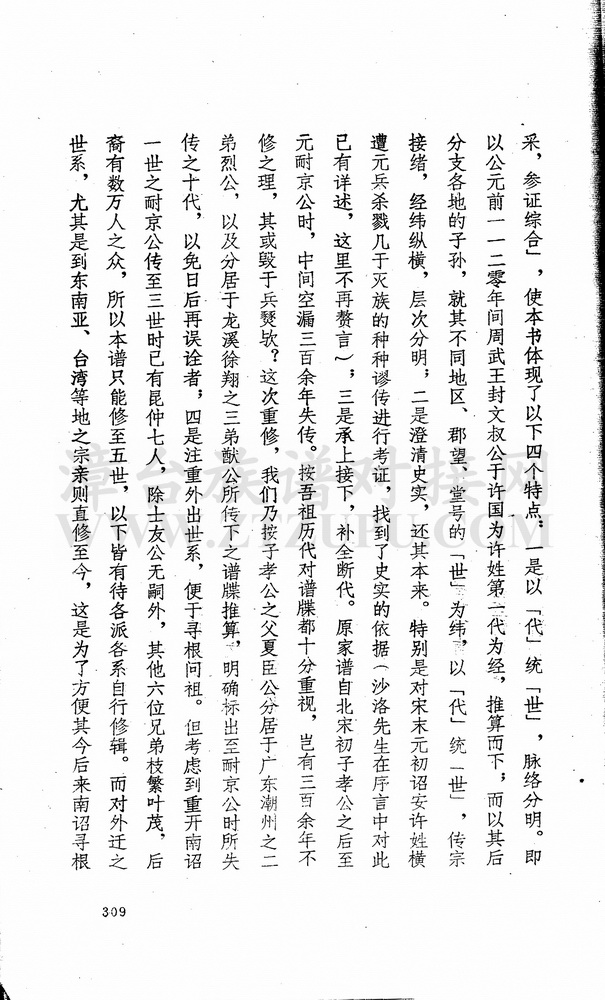 采，参证综合」，使本书体现了以下四个特点：一是以「代」统「世」，脉络分明。即
以公元前一一二零年间周武王封文叔公于许国为许姓第一代为经，推算而下，而以其后
分支各地的子孙，就其不同地区、郡望、堂号的「世」为纬，以「代」统「世」，传宗
接绪，经纬纵横，层次分明；二是澄清史实，还其本来。特别是对宋末元初诏安许姓横
遭元兵杀戮几于灭族的种种谬传进行考证，找到了史实的依据（沙洛先生在序言中对此
已有详述，这里不再赘言）；三是承上接下，补全断代。原家谱自北宋初子孝公之后至
元耐京公时，中间空漏三百余年失传。按吾祖历代对谱牒都十分重视，岂有三百余年不
修之理，其或毁于兵燹欤？这次重修，我们乃按子孝公之父夏臣公分居于广东潮州之二
弟烈公，以及分居于龙溪徐翔之三弟猷公所传下之谱牒推算，明确标出至耐京公时所失
传之十代，以免日后再误诠者；四是注重外出世系，便于寻根问祖。但考虑到重开南诏
一世之耐京公传至三世时已有昆仲七人，除士友公无嗣外，其他六位兄弟枝繁叶茂，后
裔有数万人之众，所以本谱只能修至五世，以下皆有待各派各系自行修辑。而对外迁之
世系，尤其是到东南亚、台湾等地之宗亲则直修至今，这是为了方便其今后来南诏寻根
309
漳台族谱对接网
WWW.ZTZUPU.COM